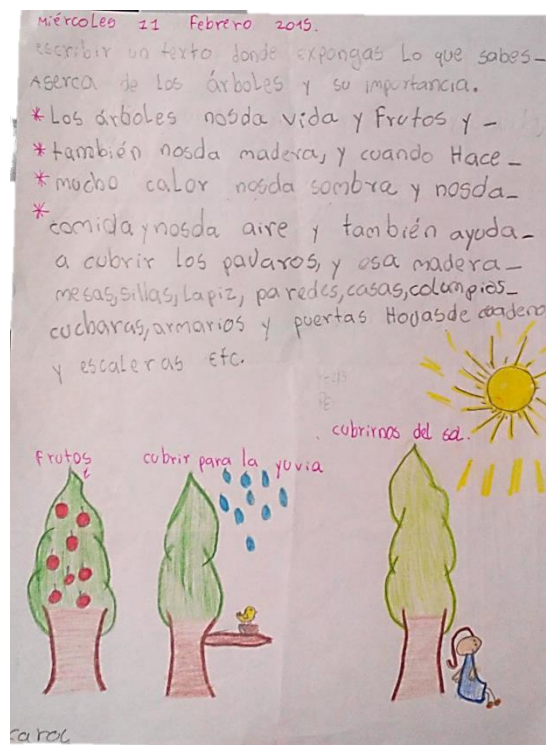 Miércoles 11 Febrero 2015.
escribir un texto donde expongas Lo que sabes-
Aserca de los árboles y su importancia.
* Los árboles nosda vida y Frutos y -
* también nosda madera, y cuando Hace -
* mucho calor nosda sombra y nosda -
* comida y nosda aire y también ayuda -
a cubrir los pavaros, y osa madera -
mesas, sillas, Lapiz, paredes, casas, columpios -
cucharas, armarios y puertas Hojas de cuaderno
y escaleras Etc.
cubrirnos del sol.
Frutos
cubrir para la yuvia
carol